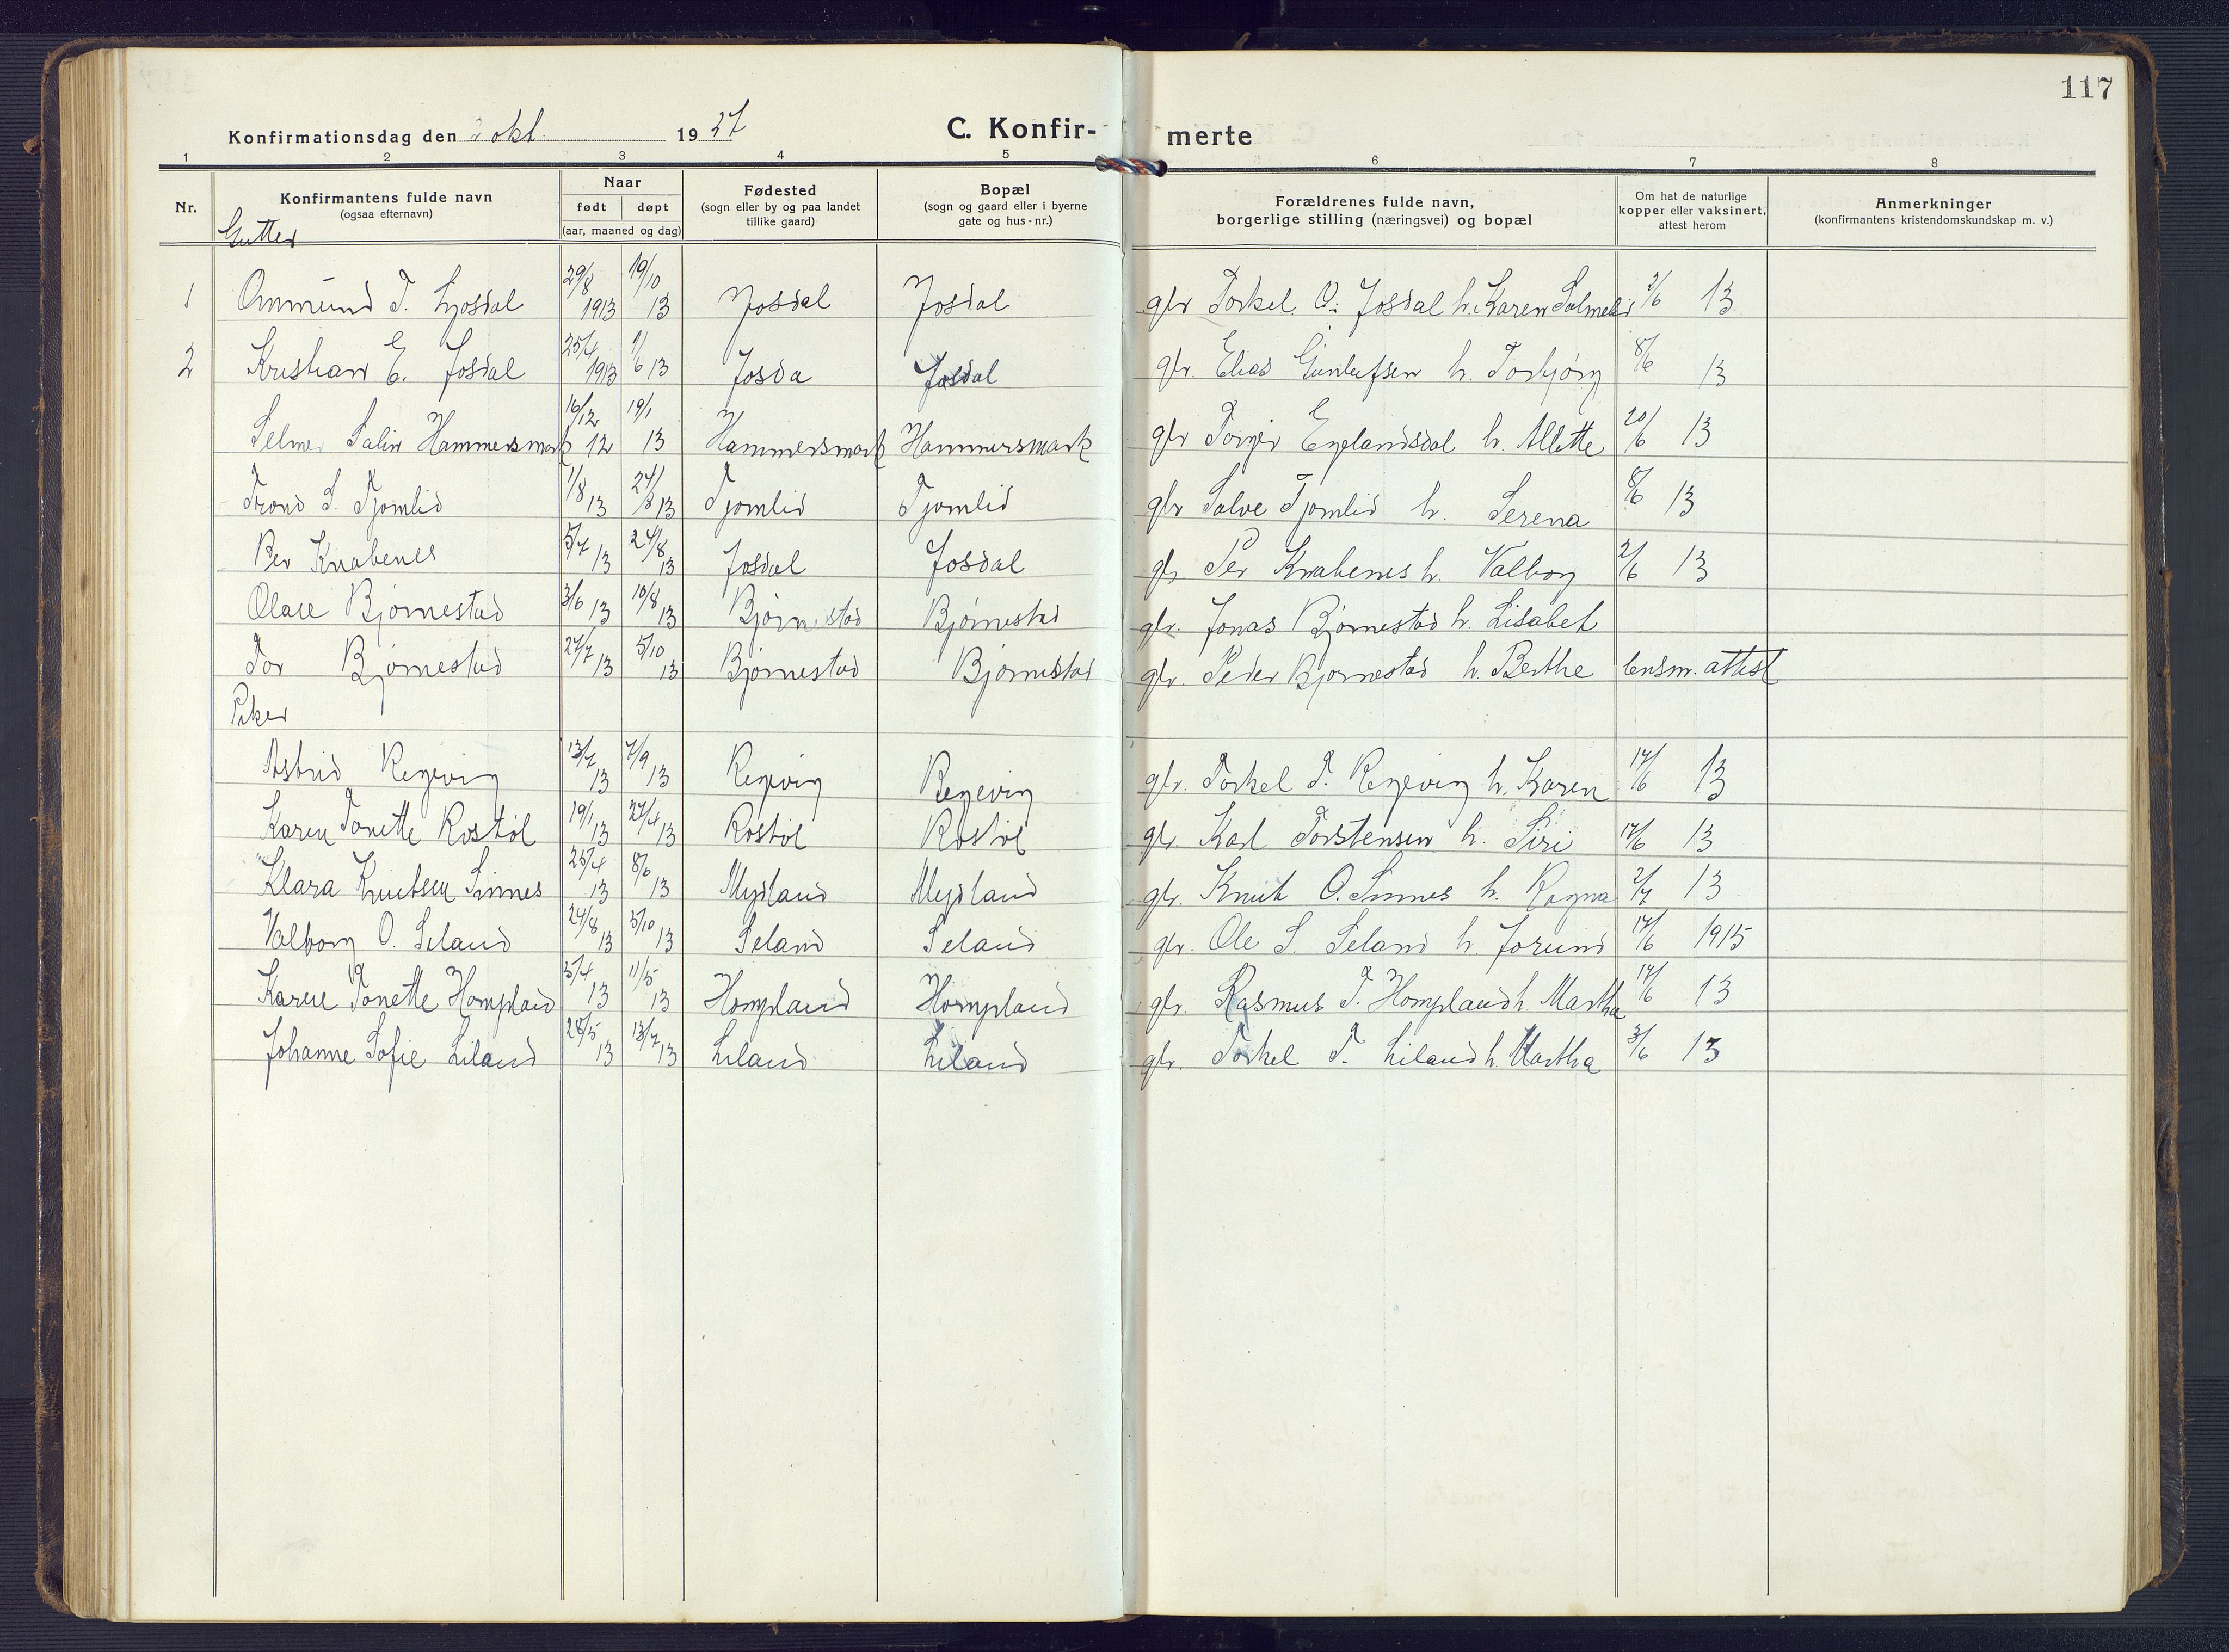 117
Konfirmationsdag den 2 okt. 1927 C. Konfir- merte
1 2 3 4 5 6 7 8
Nr. Konfirmantens fulde navn (ogsaa efternavn) Naar født døpt (aar, maaned og dag) Fødested (sogn eller by og paa landet tillike gaard) Bopæl (sogn og gaard eller i byerne gate og hus-nr.) Forældrenes fulde navn, borgerlige stilling (næringsvei) og bopæl Om hat de naturlige kopper eller vaksinert, attest herom Anmerkninger (konfirmantens kristendomskundskap m. v.)
Gutter
1 Ommund T. Ljosdal 29/8 1913 19/10 13 Josdal Josdal gbr Torkel O. Josdal h. Karen Salmelid 2/6 13
2 Kristian E. Josdal 25/4 1913 1/6 13 Josda Josdal gbr. Elias Gunleifsen h. Torbjørg 8/6 13
Selmer Salin Hammersmark 16/12 12 19/1 13 Hammersmark Hammersmark gbr Torger Englandsdal h. Allette 20/6 13
Trond S. Tjomlid 1/8 13 24/8 13 Tjomlid Tjomlid gbr Salve Tjomlid h. Serena 8/6 13
Per Knabenes 5/7 13 24/8 13 Josdal Josdal gbr. Per Knabenes h. Valborg 2/6 13
Olase Bjørnestad 3/6 13 10/8 13 Bjørnestad Bjørnestad gbr. Jonas Bjørnestad h. Lisabet
Tor Bjørnestad 27/7 13 5/10 13 Bjørnestad Bjørnestad gbr. Peder Bjørnestad h. Berthe lensm. attest
Piker
Astrid Regevig 13/7 13 7/9 13 Regevig Regevig gbr. Torkel T. Regevig h. Karen 17/6 13
Karen Tonette Rostøl 19/1 13 27/4 13 Rostøl Rostøl gbr. Karl Torstensen h. Siri 17/6 13
Klara Knutsen Sinnes 25/4 13 8/6 13 Mydland Mydland gbr. Knut O. Sinnes h. Ragna 2/7 13
Valborg O. Seland 24/8 13 5/10 13 Seland Seland gbr. Ole S. Seland h. Jorund 17/6 1915
Karen Tonette Hompland 5/4 13 11/5 13 Hompland Hompland gbr. Rasmus T. Hompland h. Martha 17/6 13
Johanne Sofie Liland 28/5 13 13/7 13 Liland Liland gbr. Torkel T. Liland h. Martha 3/6 13